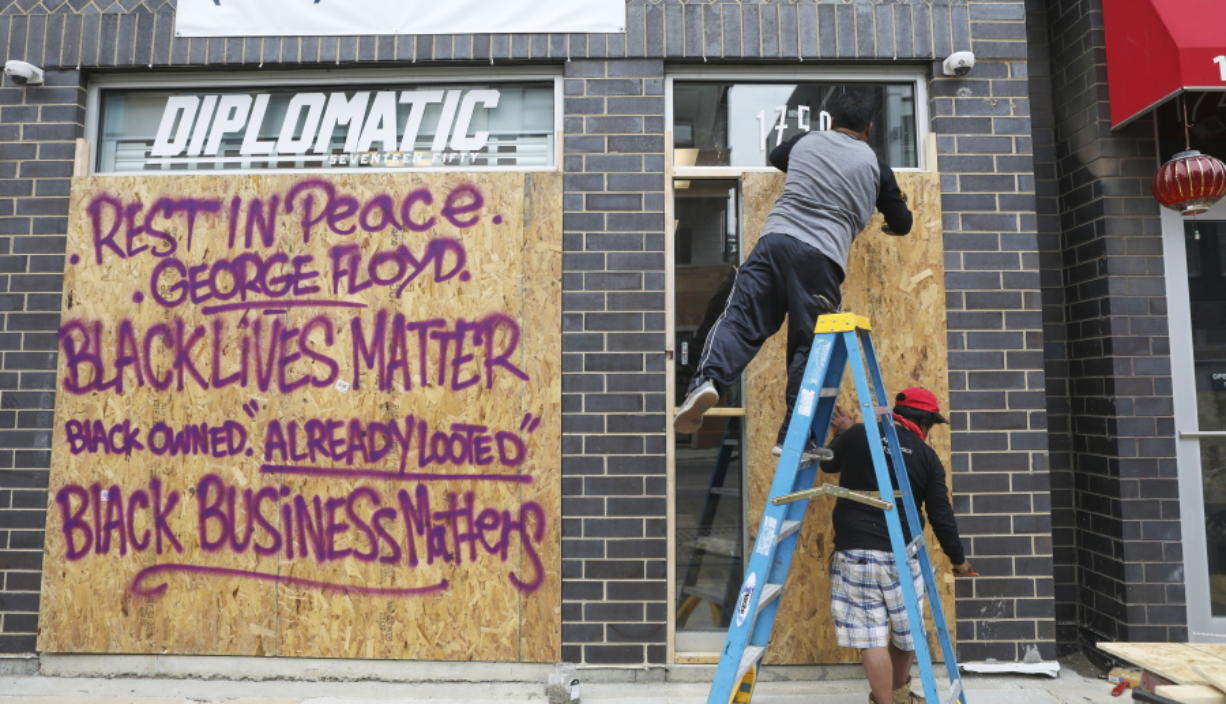 DIPLOMATIC
SEVENTEEN FIFTY
1750
. REST IN Peace.
. GEORGE FLOYD.
BLACK LIVES MATTER
BLACK OWNED. "ALREADY LOOTED"
BLACK BUSINESS Matters